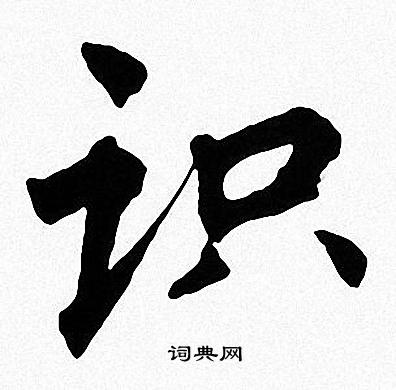 识
词典网